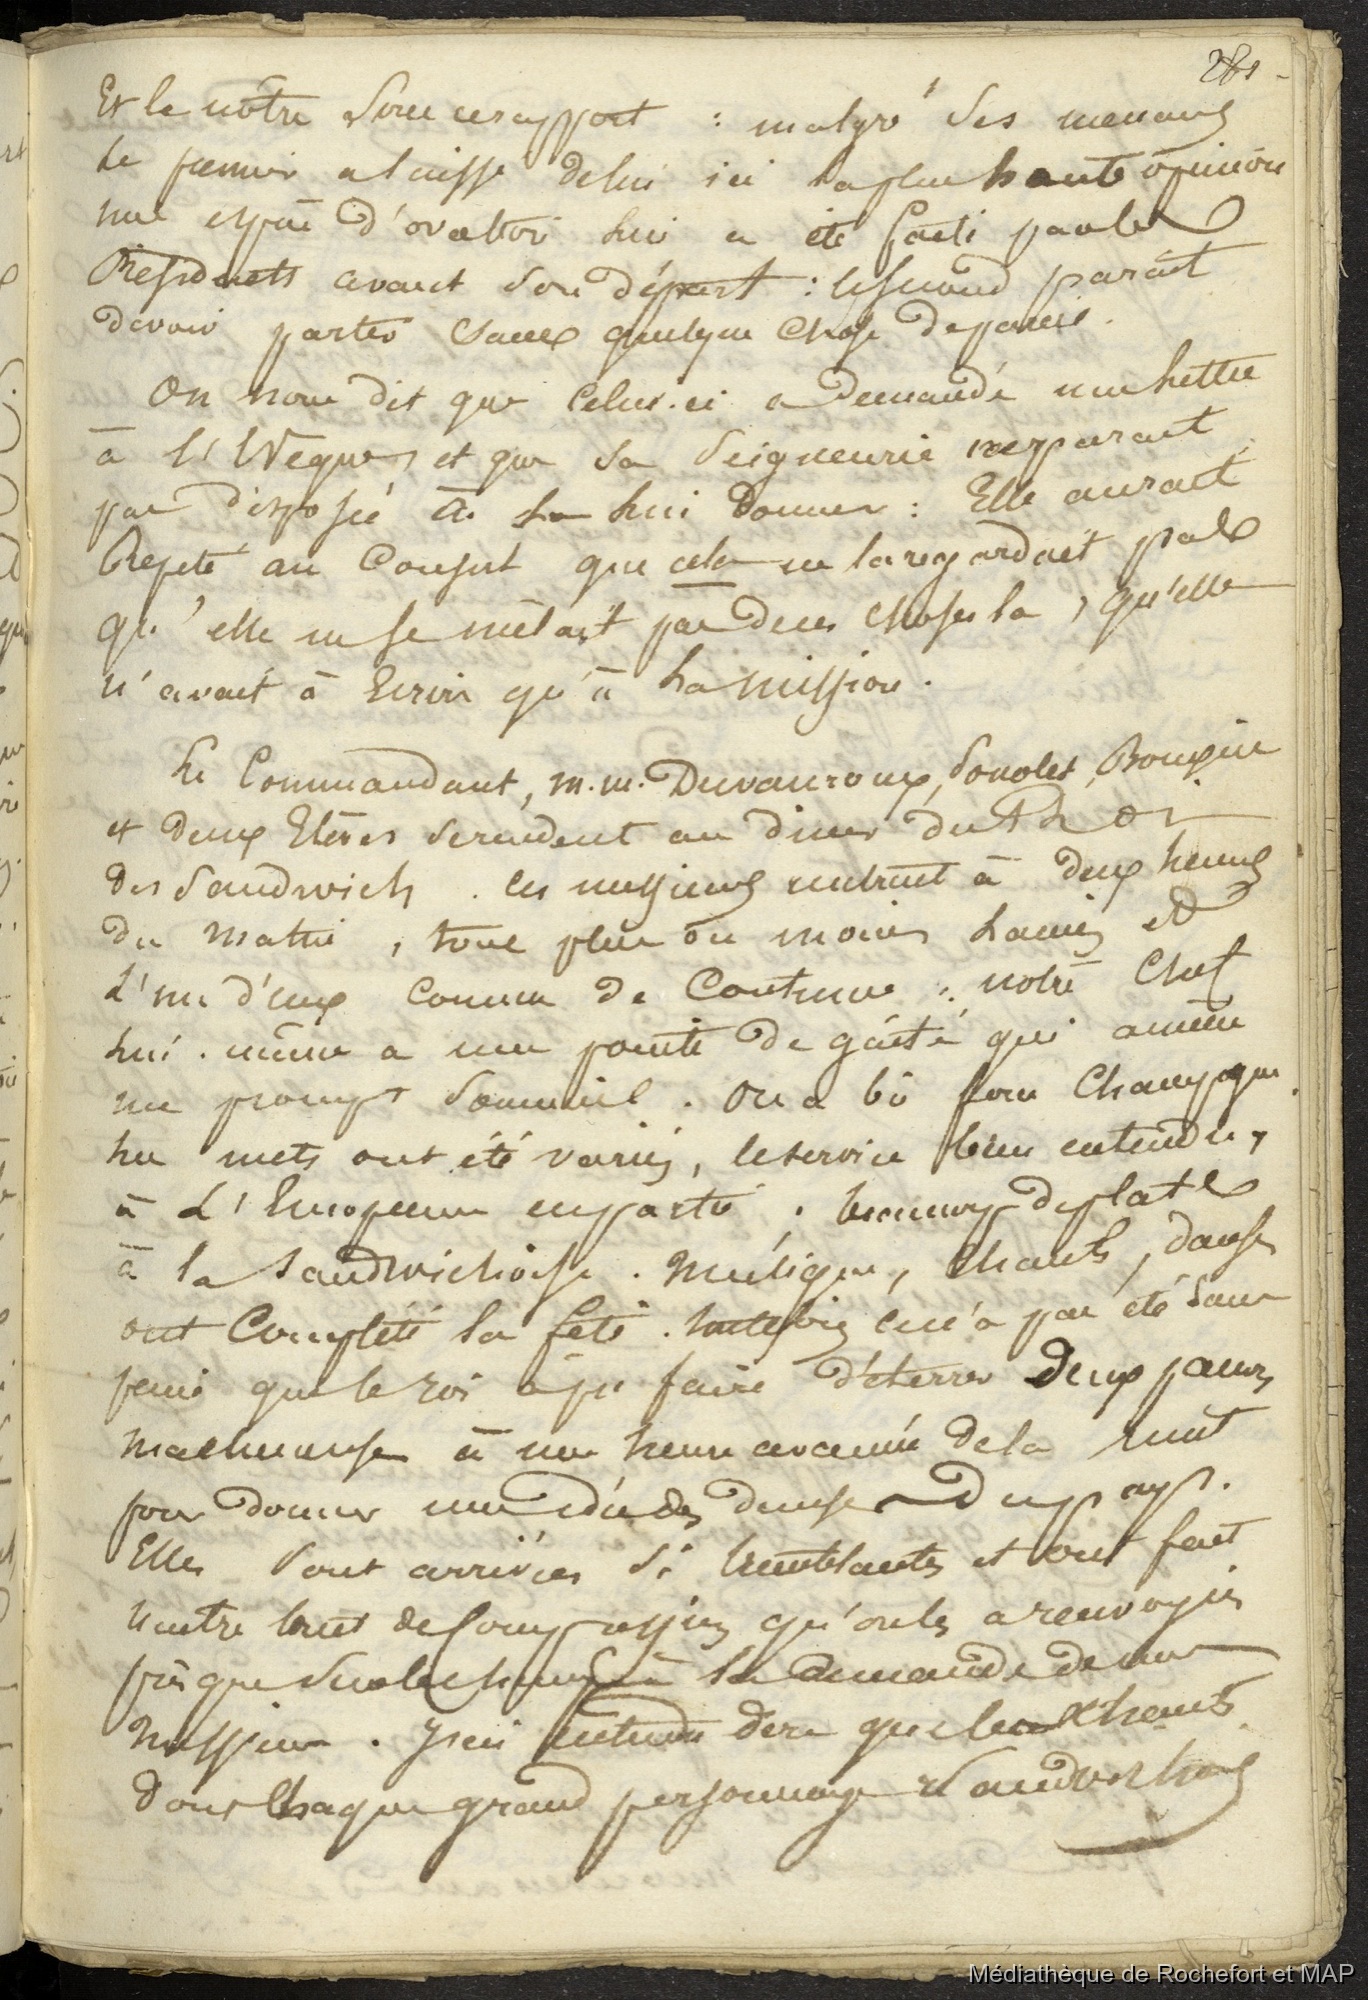 281 -
Et le nôtre sous ce rapport : malgré ses menaces
le premier a laissé de lui ici la plus haute opinion
une espèce d'ovation lui a été faite par les
Résidents avant son départ : le second parait
devoir partir sans quelque chose de pareil.
On nous dit que celui-ci a demandé une lettre
à l'Evêque, et que sa Seigneurie ne parait
pas disposée à la lui donner : Elle aurait
Répété au Consul que cela ne la regardait pas
qu'elle ne se mêlait pas de ces choses là, qu'elle
n'avait à Ecrire qu'à la Mission.
Le Commandant, m.m. Duvauroux, Sonolet,
et deux Elèves se rendent au diner du Roi
des Sandwich. Ces messieurs rentrent à deux heures
du matin, tous plus ou moins lancés et
L'un d'eux comme de Coutume : notre Chef
lui-même a une pointe de gaité qui amène
un prompt sommeil. On a bû force Champagne
les mets ont été variés, le service bien entendu,
à L'Européenne en partie ; beaucoup de plats
à la Sandwichoise. Musique, Chants, danses
ont Complété la fête. toutefois ce n'a pas été sans
peine que le roi a pu faire déterrer deux pauvres
malheureuses à une heure avancée de la nuit
pour donner une idée des danses du pays.
Elles sont arrivées si tremblantes et ont fait
naître tant de compassion qu'on les a renvoyées
presque sur le champ à la demande de nos
Messieurs. J'ai entendu dire que les Chants
dont Chaque grand personnage Sandwichois
Médiathèque de Rochefort et MAP